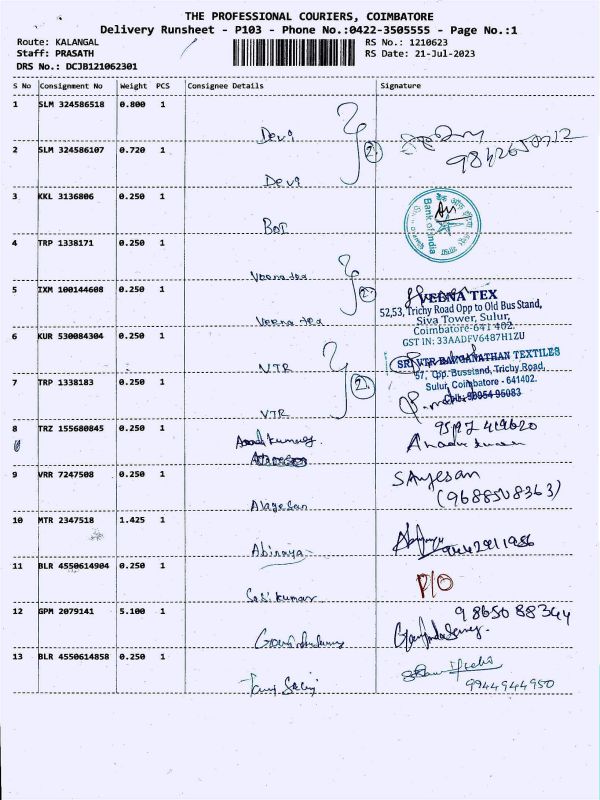 THE PROFESSIONAL COURIERS, COIMBATORE
Delivery Runsheet - P103 - Phone No.:0422-3505555 - Page No.:1
Route: KALANGAL RS No.: 1210623
Staff: PRASATH RS Date: 21-Jul-2023
DRS No.: DCJB121062301
S No Consignment No Weight PCS Consignee Details Signature
1 SLM 324586518 0.800 1
Devi
2 SLM 324586107 0.720 1
Devi
3 KKL 3136806 0.250 1
BOI
Bank of India
4 TRP 1338171 0.250 1
Veena tex
5 IXM 100144608 0.250 1
Veena tex
VEENA TEX
52,53, Trichy Road Opp to Old Bus Stand,
Siva Tower, Sulur,
Coimbatore-641 402.
GST IN: 33AADFV6487H1ZU
6 KUR 530084304 0.250 1
VTR
SRI VTR RANGANATHAN TEXTILES
57, Opp. Busstand, Trichy Road,
Sulur, Coimbatore - 641402.
7 TRP 1338183 0.250 1
VTR
8 TRZ 155680845 0.250 1
9 VRR 7247508 0.250 1
Alagesan
(9688508363)
10 MTR 2347518 1.425 1
Abinaya
11 BLR 4550614904 0.250 1
Sasikumar
P/O
12 GPM 2079141 5.100 1
9865088344
13 BLR 4550614858 0.250 1
9944944950